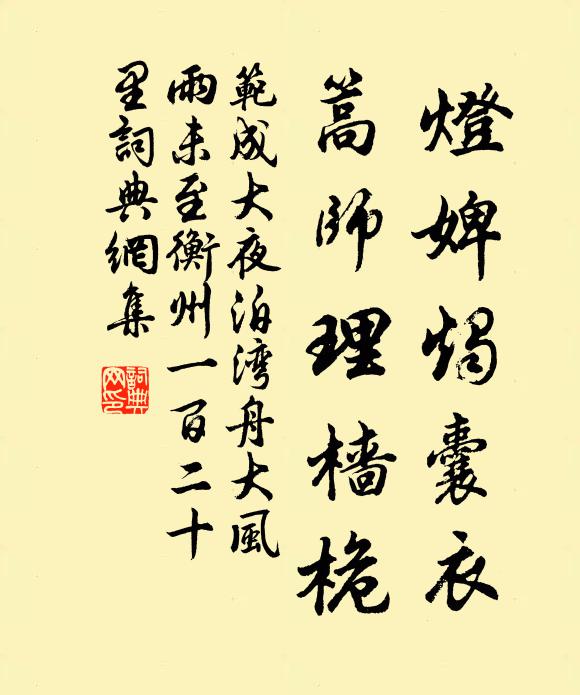 燈婢燭囊衣
篙師理檣桅
範成大夜泊湾舟大風
雨未至衡州一百二十
里詞典網集
詞典
网印